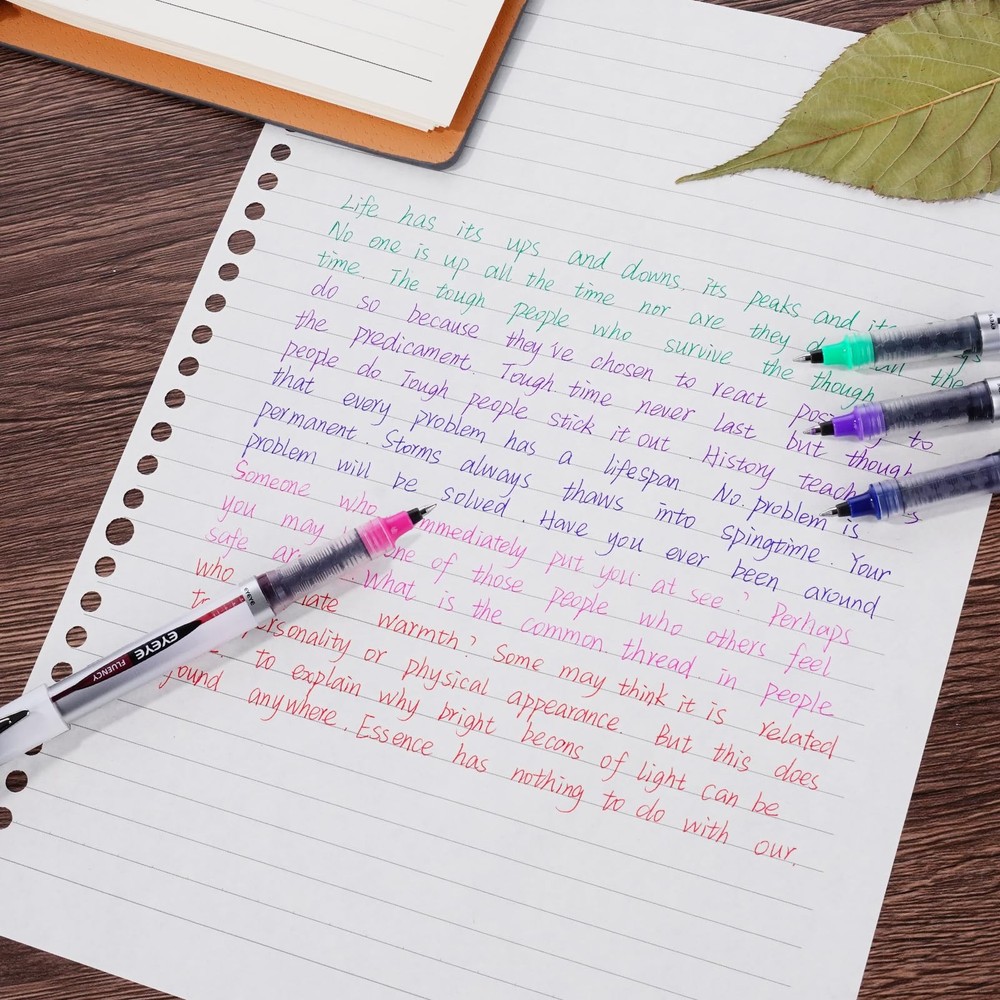 Life has its ups and downs. its peaks and its
No one is up all the time nor are they all the
time. The tough people who survive the though
do so because they've chosen to react to
the predicament. Tough time never last but though
people do. Tough people stick it out. History
that every problem has a lifespan No problem is
permanent. Storms always thaws into spingtime. Your
problem will be solved. Have you ever been around
Someone who immediately put you at see? Perhaps
you may one of those people who others feel
safe What is the common thread in people
who warmth? Some may think it is related
to personality or physical appearance. But this does
to explain why bright becons of light can be
found anywhere. Essence has nothing to do with our.
EYEYE
FLUENCY